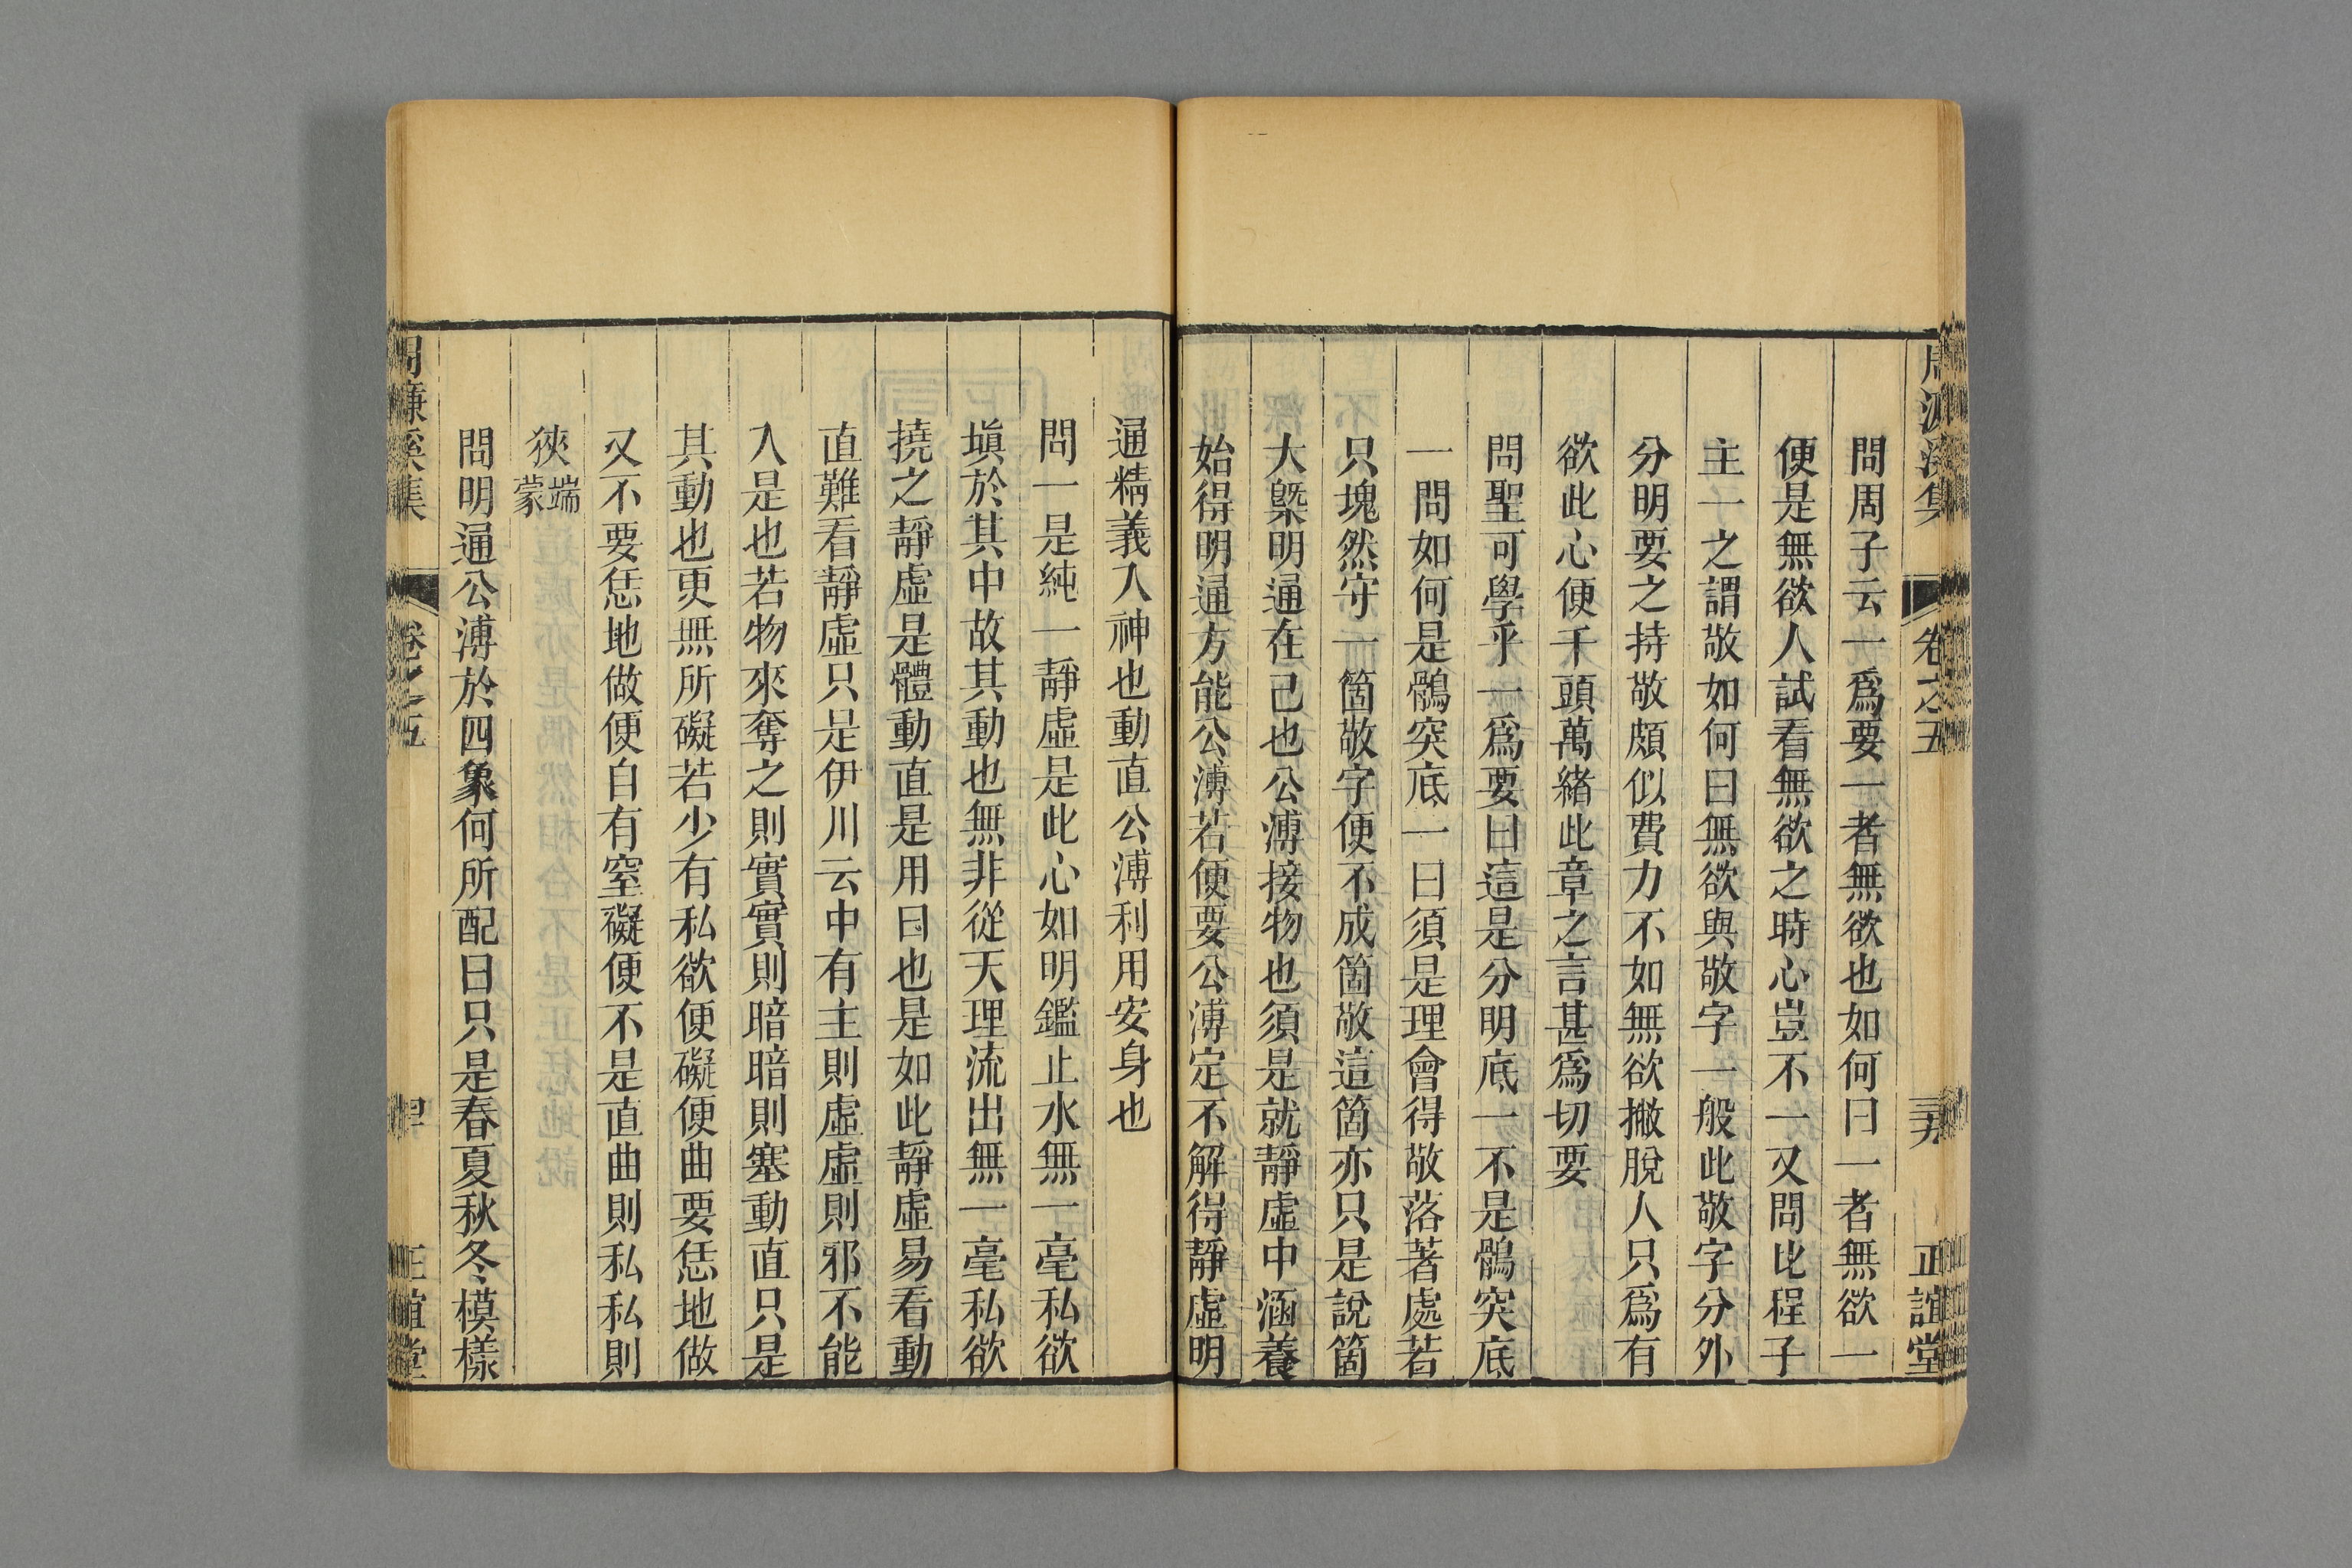 周濂溪集 卷之五 三九 正誼堂
問周子云一爲要一者無欲也如何曰一者無欲一
便是無欲人試看無欲之時心豈不一又問比程子
主一之謂敬如何曰無欲與敬字一般此敬字分外
分明要之持敬頗似費力不如無欲撇脫人只爲有
欲此心便千頭萬緒此章之言甚爲切要
問聖可學乎一爲要曰這是分明底一不是鶻突底
一問如何是鶻突底一曰須是理會得敬落著處若
只塊然守一箇敬字便不成箇敬這箇亦只是說箇
大槩明通在己也公溥接物也須是就靜虛中涵養
始得明通方能公溥若便要公溥定不解得靜虛明
通精義入神也動直公溥利用安身也
問一是純一靜虛是此心如明鑑止水無一毫私欲
塡於其中故其動也無非從天理流出無一毫私欲
撓之靜虛是體動直是用曰也是如此靜虛易看動
直難看靜虛只是伊川云中有主則虛虛則邪不能
入是也若物來奪之則實實則暗暗則塞動直只是
其動也更無所礙若少有私欲便礙便曲要恁地做
又不要恁地做便自有窒礙便不是直曲則私私則
狹端蒙
問明通公溥於四象何所配曰只是春夏秋冬模樣
周濂溪集 卷之五 正誼堂